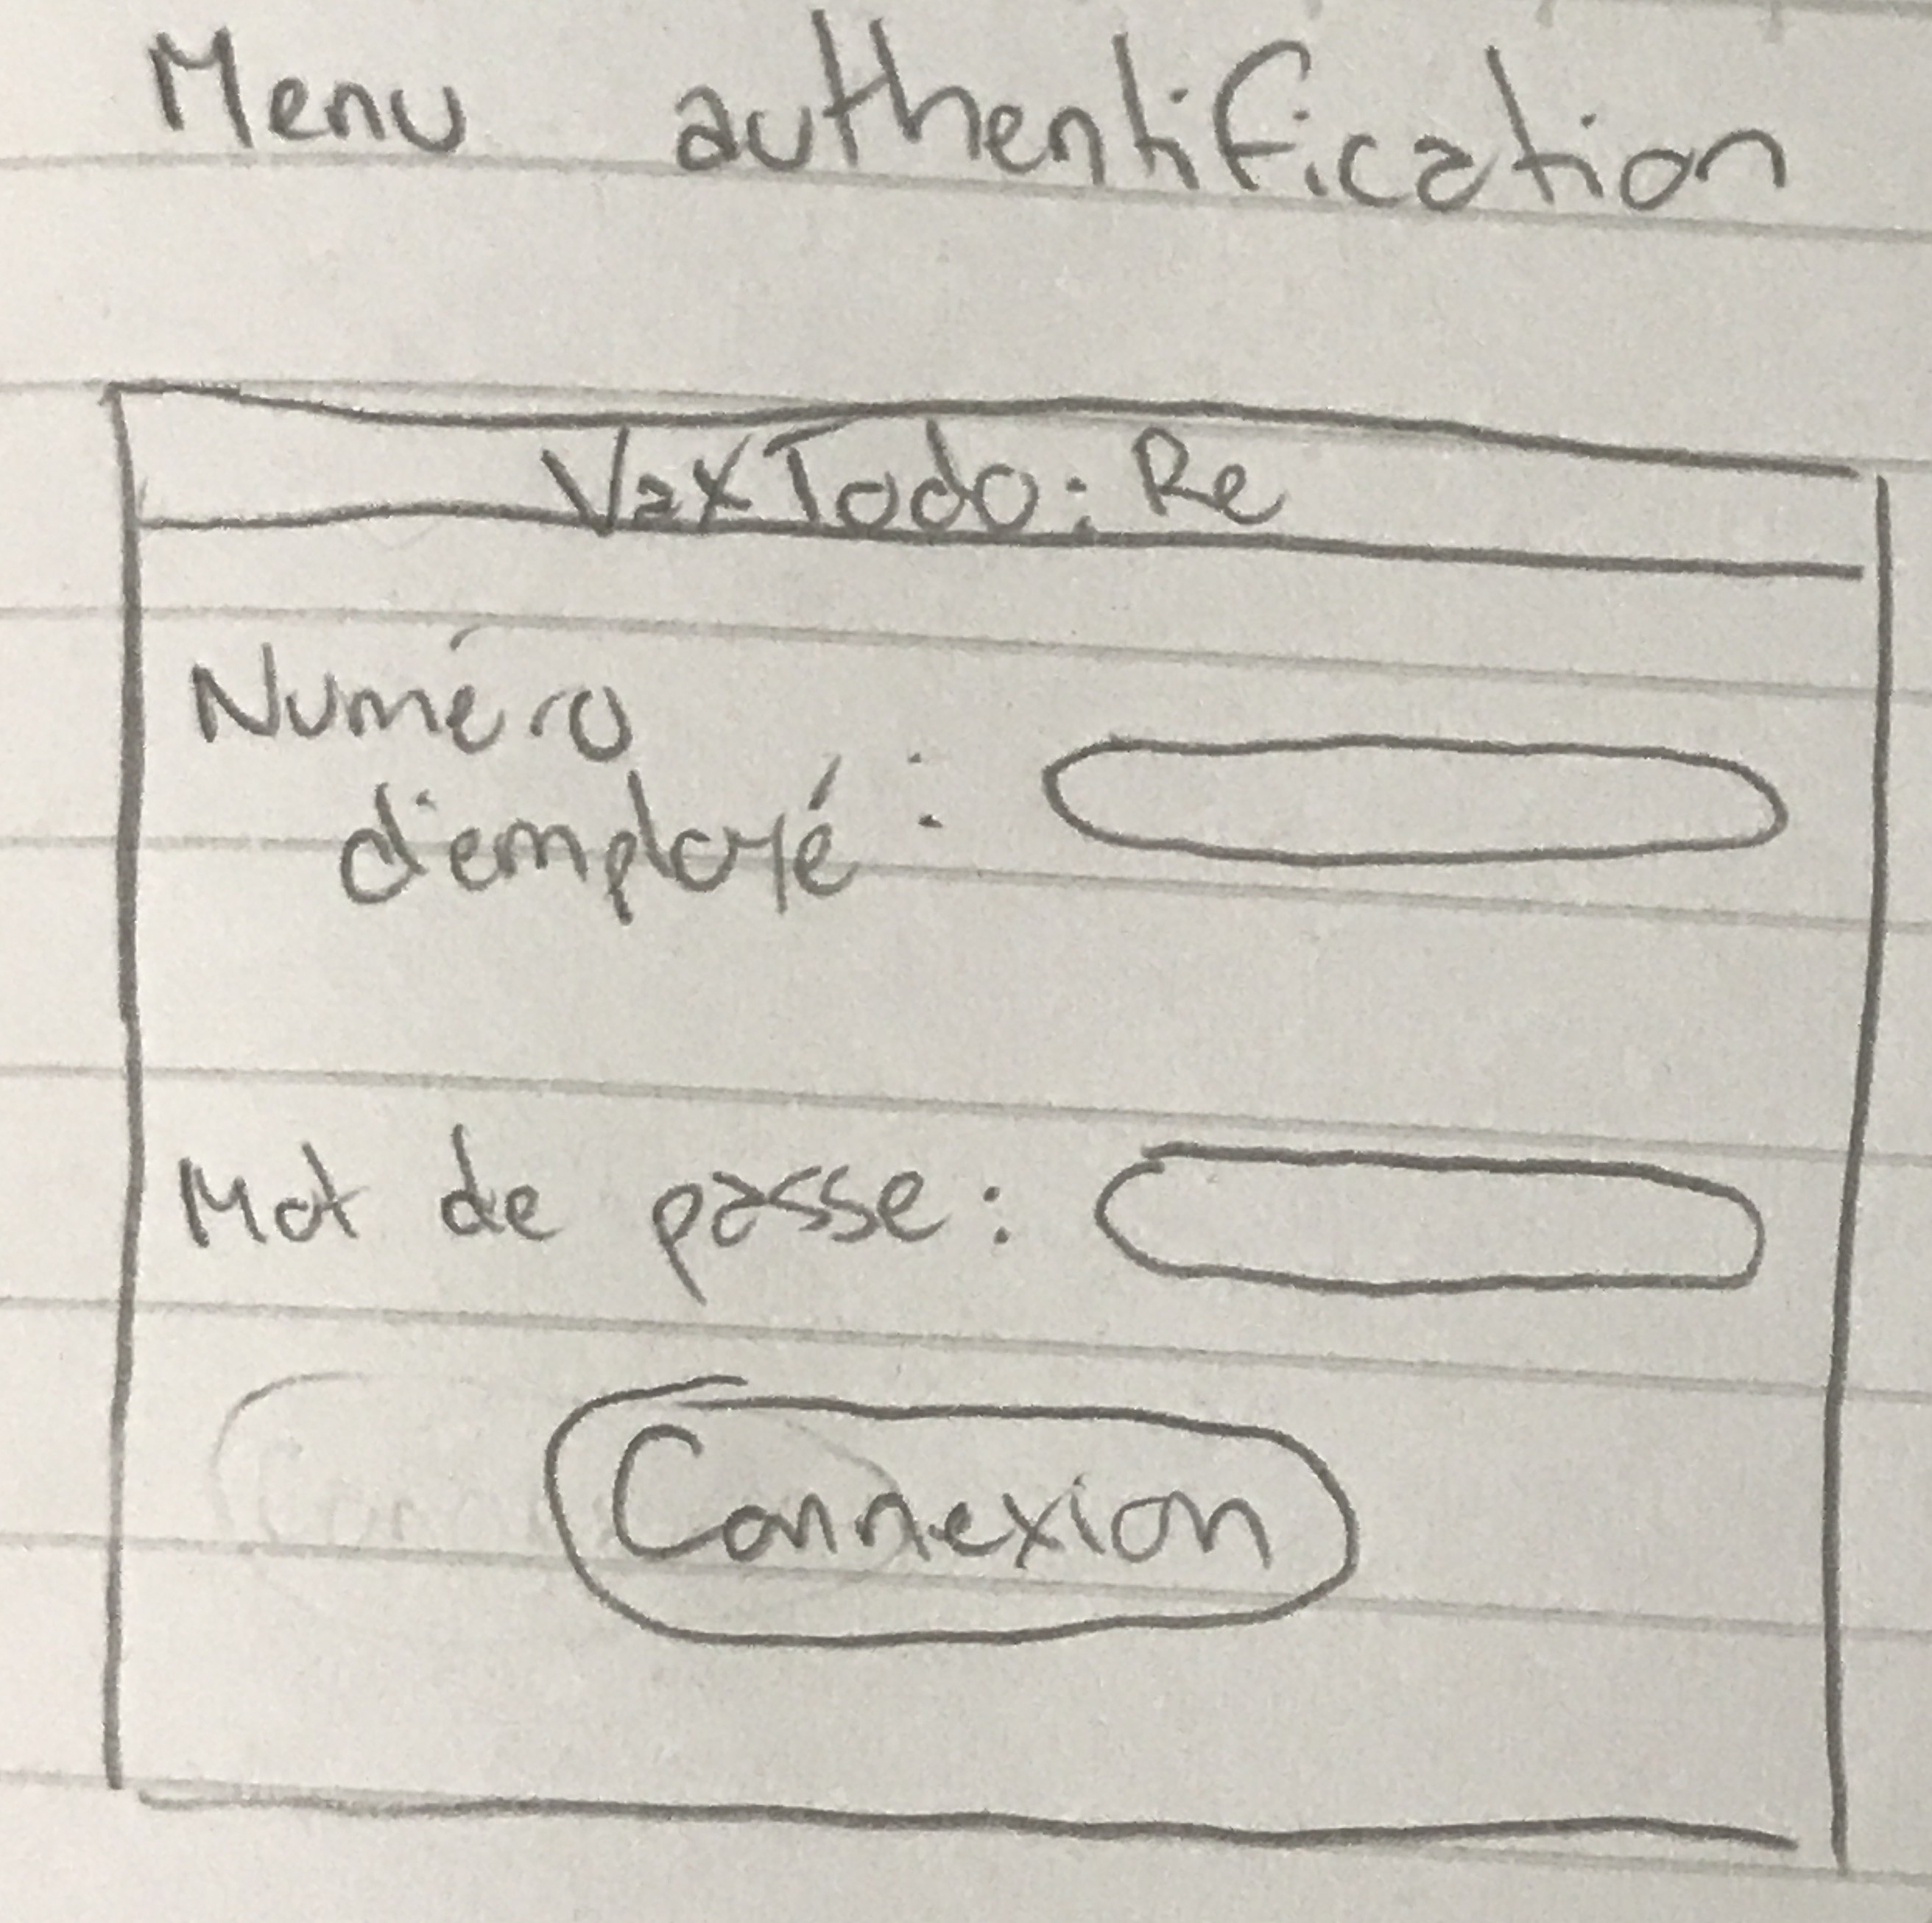 Menu authentification
VaxTodo: Re
Numéro
d'employé :
Mot de passe :
Connexion